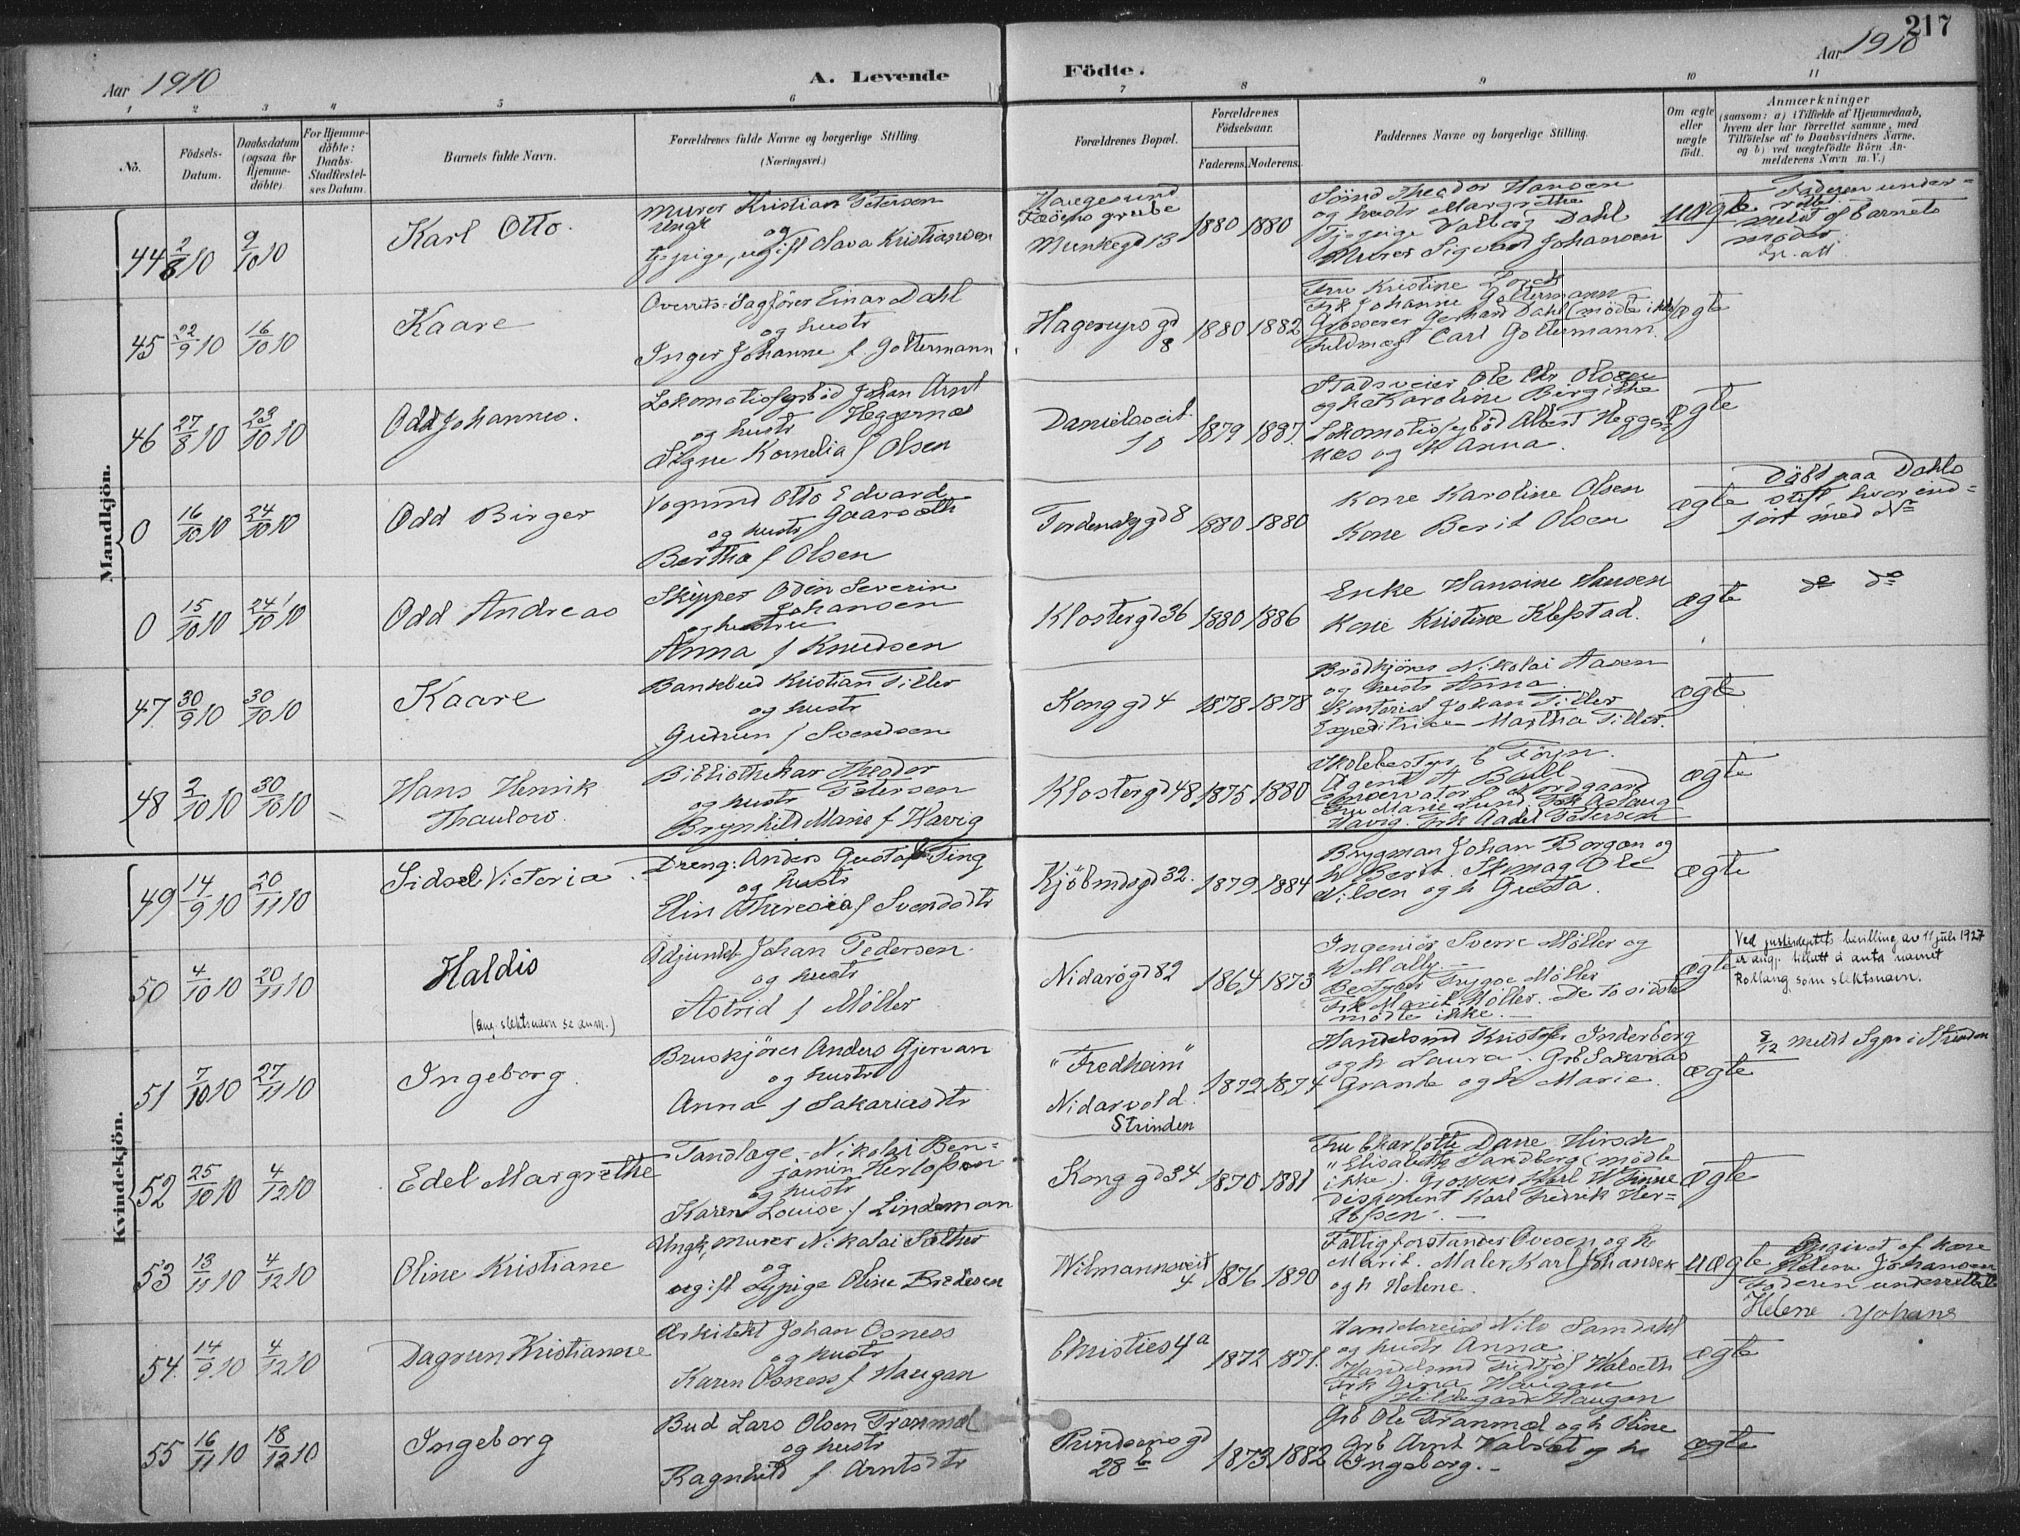 217
Aar 1910
A. Levende Födte.
Aar 1910
1 2 3 4 5 6 7 8 9 10 11
No.
Födsels-
Datum.
Daabsdatum
(ogsaa for
Hjemme-
döbte)
For Hjemme-
döbte:
Daabs-
Stadfæstel-
ses Datum.
Barnets fulde Navn.
Forældrenes fulde Navne og borgerlige Stilling.
(Næringsvei.)
Forældrenes Bopæl.
Forældrenes
Födselsaar.
Faderens. Moderens.
Faddernes Navne og borgerlige Stilling.
Om ægte
eller
uægte
födt.
Anmærkninger
(saasom: a) i Tilfælde af Hjemmedaab,
hvem der har forrettet samme, med
Tilföielse af to Daabsvidners Navne.
og b) ved uægtefödte Börn An-
melderens Navn m. V.)
Mandkjön.
44 2/8 10 9/10 10
Karl Otto.
Murer Kristian Petersen
Ungk og
tj.pige, ugift Olava Kristiansen
Haugesund
Munkegd 13
1880 1880
og hustr Margrethe
Tj.pige Valborg Dahl
Murer Sigvard Johansen
uægte
Faderen under-
rettet.
meldt af barnets
moder.
45 22/9 10 16/10 10
Kaare
Overrets-Sagförer Einar Dahl
og hustr
Inger Johanne f. Goltermann
Hagerupsgd
8
1880 1882
Fru Kristine Lorck
Frk Johanne Goltermann
Grosserer Gerhard Dahl (mødte ikke)
Fuldmægt Carl Goltermann.
ægte
46 27/8 10 23/10 10
Odd Johannes.
Lokomotivfyrbød Johan Arnt
Heggernes
og hustr
Signe Kornelia f Olsen
Danielsveit.
10
1879 1887.
Stadsveier Ole Chr Olsen
og h Karoline Birgithe
Lokomotivfyrbød Albert Hegger-
næs og h Anna.
ægte
0 16/10 10 24/10 10
Odd Birger
Vognmd Otto Edvard
Gaarseth
og hustr
Bertha f Olsen
Tordenskjgd 8
1880 1880
Kone Karoline Olsen
Kone Berit Olsen
ægte
Döbt paa Dahls
stift. hvor ind-
fört med No
0 15/10 10 24/10 10
Odd Andreas
Skipper Odin Severin
Johansen
og hustru
Anna f Knudsen
Klostergd 36
1880 1886
Enke Hansine Hansen
Kone Kristine Klefstad.
ægte
do do
47. 30/9 10 30/10 10
Kaare
Bankbud Kristian Tiller
og hustr
Gudrun f Svendsen
Konggd 4
1878 1878
Brödkjörer Nikolai Aasen
og hustr Anna.
Kontorist Johan Tiller
Expeditrice Martha Tiller.
ægte
48 2/10 10 30/10 10
Hans Henrik
Thaulow.
Bibliothekar Theodor
Petersen
og hustr
Brynhild Marie f Havig
Klostergd 48
1875 1880
Agent A Bull
Conservator O Nordgaard
Fru Marie Lund. Frk Aslaug
Havig. Frk Aadel Petersen
ægte
Kvindekjön.
49 14/9 10 20/11 10
Sidsel Victoria.
Dreng: Anders Gustaf Ting
og hustr
Elin Theresia f Svendsdtr
Kjöbmdsgd 32.
1879 1884
Brygman Johan Borgan og
h Berit. Skomag Ole
Nilsen og h Gusta.
ægte
50 4/10 10 20/11 10
Haldis
(ang. slektsnavn se anm.)
Adjunkt Johan Pedersen
og hustr
Astrid f Möller
Nidarösgd 82
1864 1873
Ingeniör Sverre Möller og
h Mally. —
Bestyrer Trygve Möller
Frk Marit Möller. De to sidste
mødte ikke. —
ægte
Ved justisdeptets bevilling av 11 juli 1927
er ang. tillatt å anta navnet
Rollang som slektsnavn.
51 7/10 10 27/11 10
Ingeborg.
Bruskjörer Anders Gjervan
og hustr
Anna f Sakariasdtr
"Fredheim"
Nidarvold.
Strinden
1872 1874
Handelsmd Kristofer Inderberg
og h Laura. Grb Sakarias
Grande og h Marie.
ægte
8/12 meldt Sgpr i Strinden
52 25/10 10 4/12 10
Edel Margrethe
Tandlæge Nikolai Ben-
jamin Herlofson
og hustr
Karen Louise f Lindeman
Konggd 34
1870 1881
Fru Charlotte Dane Hirsch
" Elisabeth Sandberg (mødte
ikke). Grosserer Karl W Finne
Disponent Karl Fredrik Her-
lofsen. —
ægte
53 13/11 10 4/12 10
Oline Kristiane
Ungk, murer Nikolai Sæther
og
ugift tj.pige Oline Bredesen
Wilmannsveit
4
1876 1890
Fattigforstander Ovesen og h
Marit. Maler Karl Johansen
og h Helene.
uægte
Angivet af kone
Helene Johansen
Faderen underrettet
Helene Johans
54. 14/9 10 4/12 10
Dagrun Kristianne
Arkitekt Johan Osness
og hustr
Karen Osness f Haugan
Christiesg 4 a
1872 1871.
Handelsreis Nils Samdahl
og hustr Anna.
Handelsmd Fridtjof Halseth
Frk Gina Haugan
" Hildegard Haugan
ægte
55 16/11 10 18/12 10
Ingeborg
Bud Lars Olsen Tranmæl
og hustr
Ragnhild f. Arntsdtr
Prindsensgd
28 b
1873 1882
Grb Ole Tranmæl og h Oline
Grb Arnt Kalset og h
Ingeborg. —
ægte